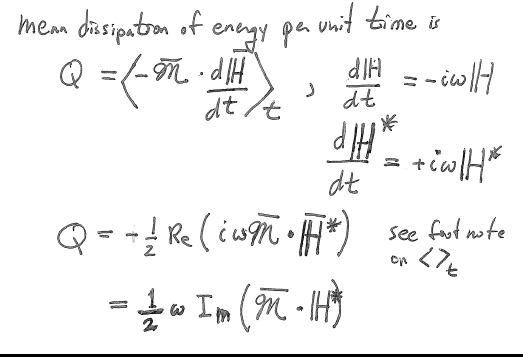 mean dissipation of energy per unit time is
Q = ⟨-𝔐̄ · dℍ̄/dt⟩_t , dℍ/dt = -iωℍ
dℍ*/dt = +iωℍ*
Q = -½ Re (iω𝔐̄ · ℍ̄*) see foot note on <>_t
= ½ ω Im (𝔐̄ · ℍ*)